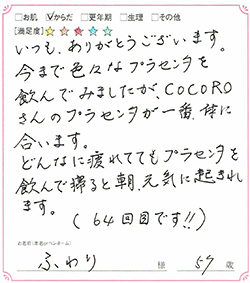 □お肌 ☑からだ □更年期 □生理 □その他
[満足度]☆☆☆☆☆
いつも、ありがとうございます。
今まで色々なプラセンタを
飲んでみましたが、COCORO
さんのプラセンタが一番、体に
合います。
どんなに疲れててもプラセンタを
飲んで寝ると朝、元気に起きれ
ます。
(64回目です!!)
お名前(本名orペンネーム)
ふわり 様 57 歳